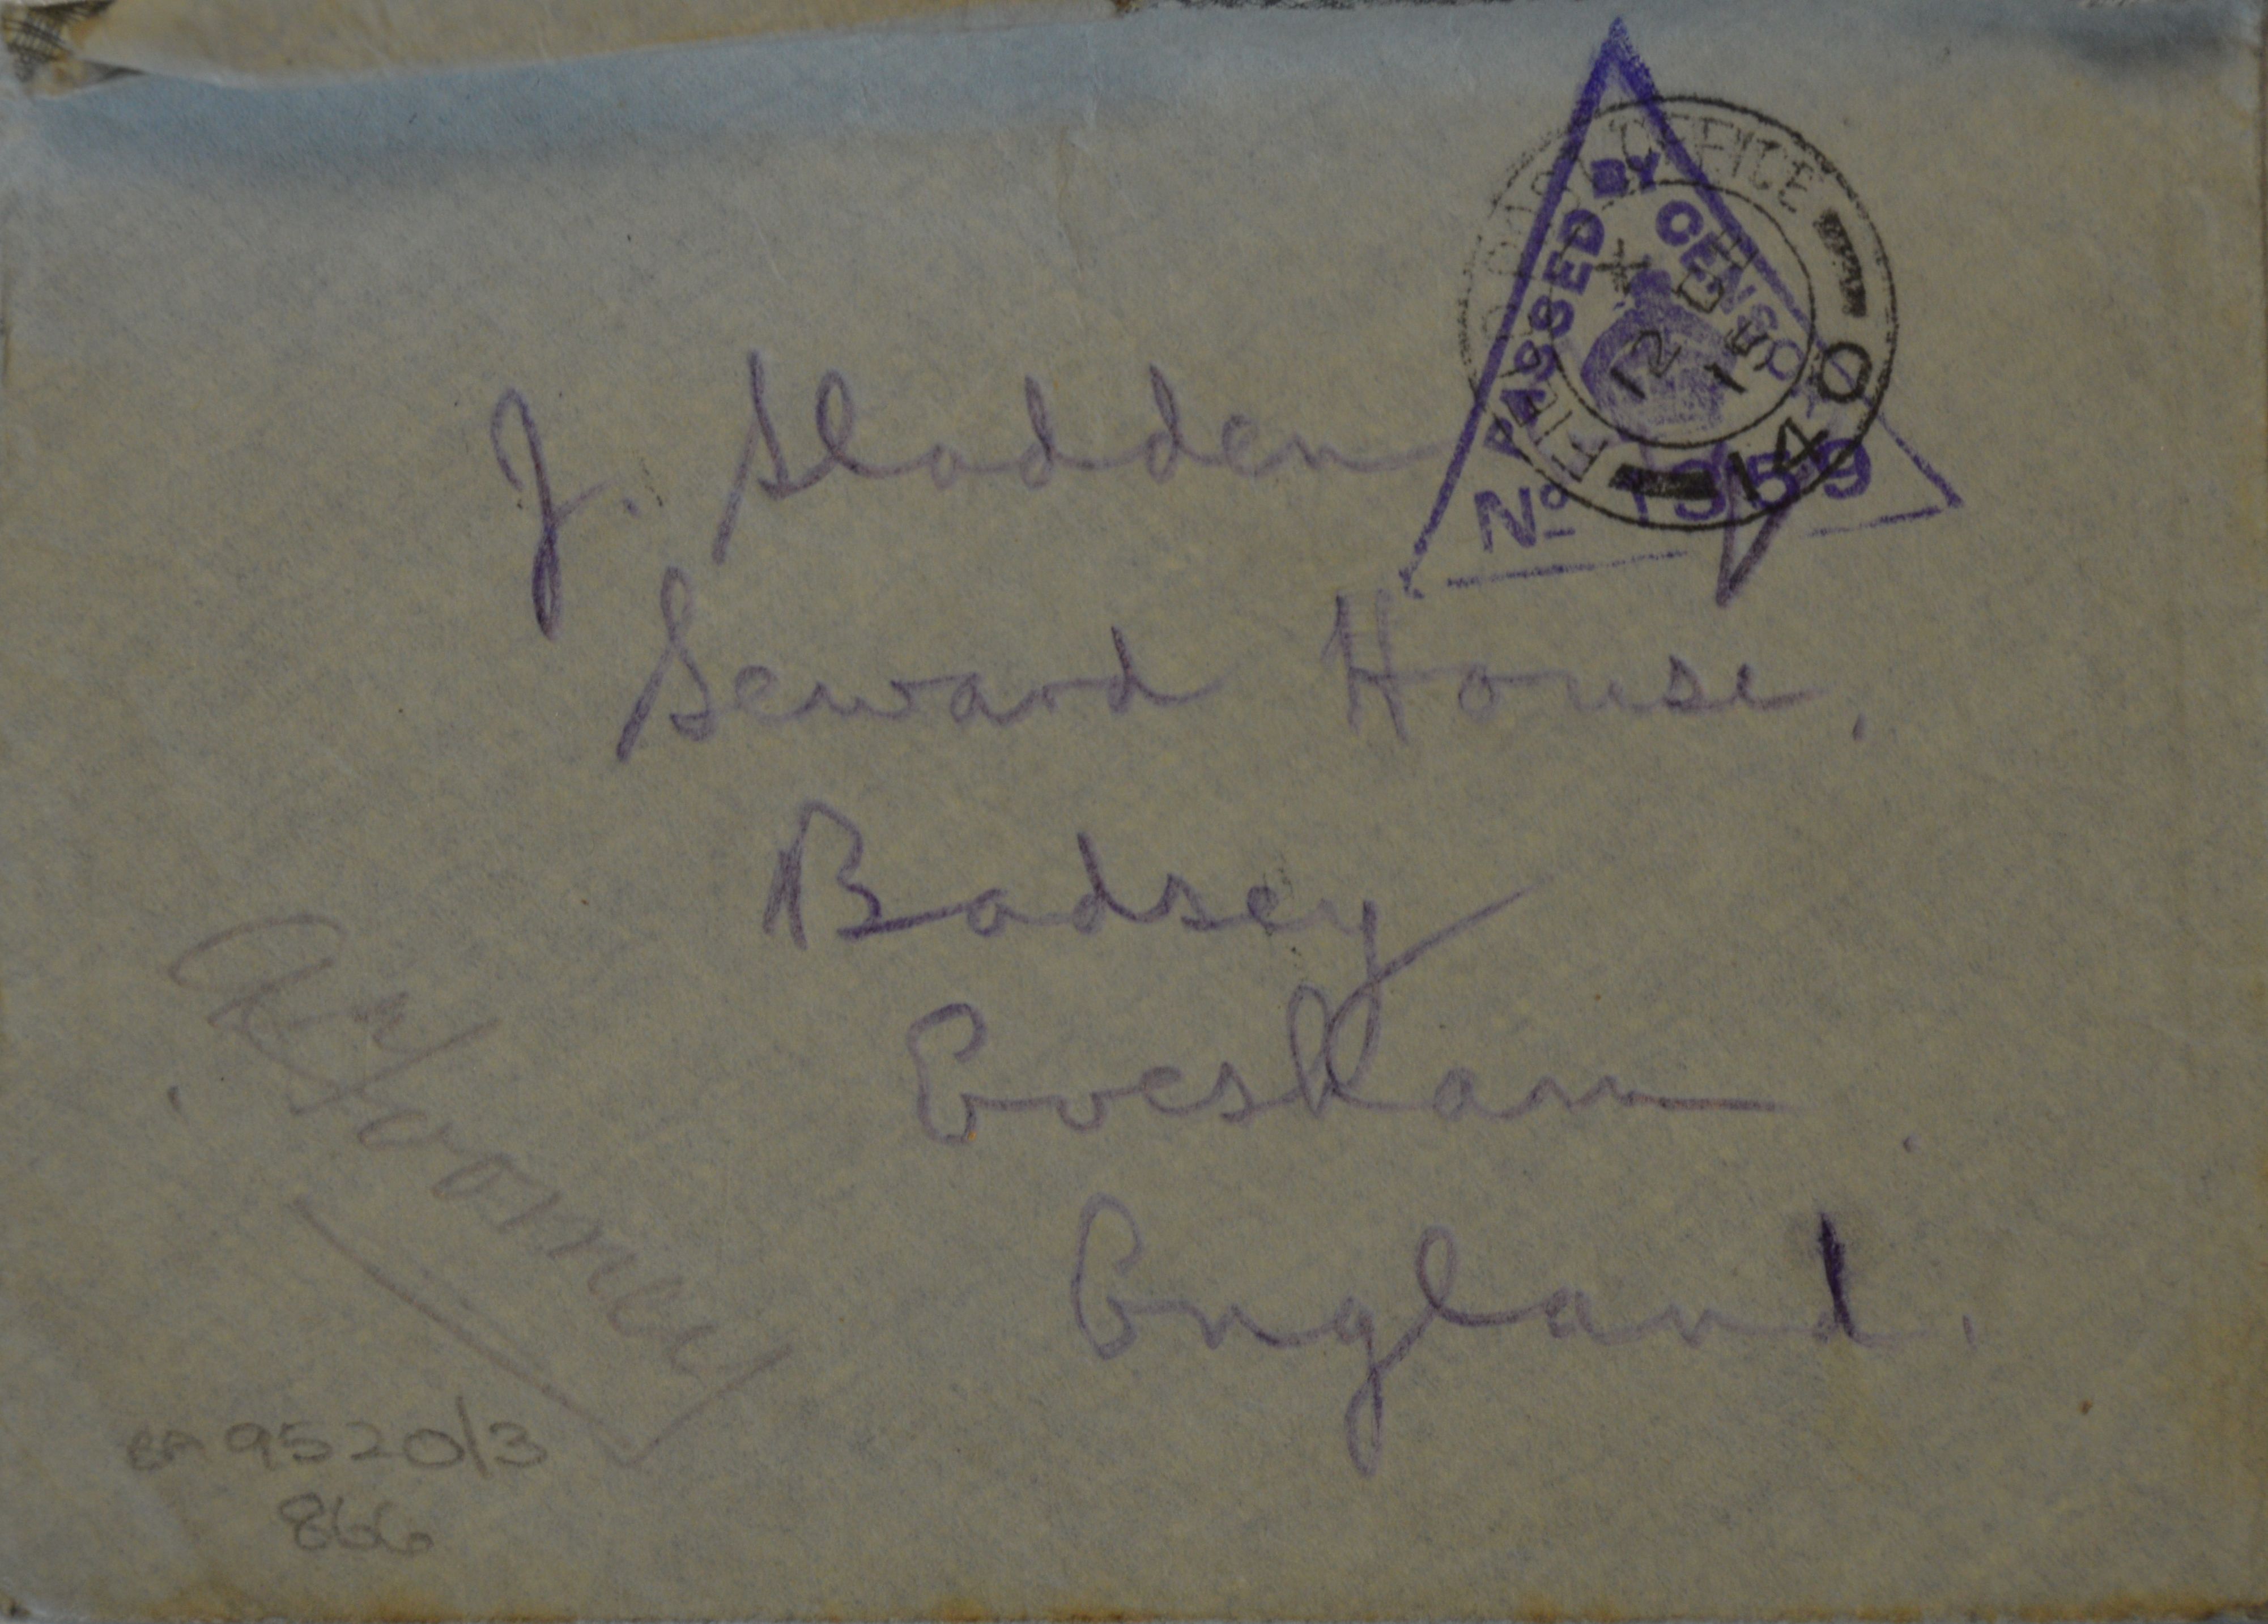 PASSED BY CENSOR
No 1359
FIELD POST OFFICE
140
X
12 DE
15
J. Sladden
Seward House,
Badsey
Evesham.
England.
BA 9520/3
866